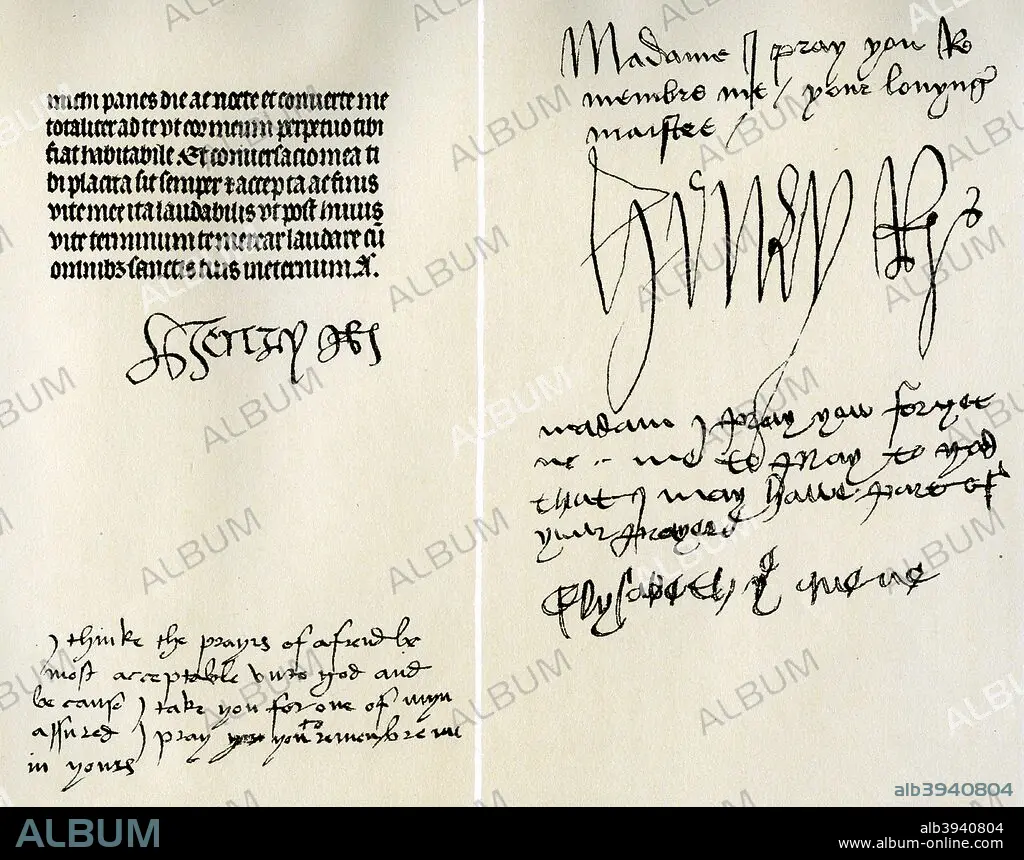 michi panes die ac nocte et conuerte me
totaliter ad te vt cor meum perpetuo tibi
fiat habitabile. Et conuersacio mea ti
bi placita sit semper & accepta ac finis
vite mee ita laudabilis vt post huius
vite terminum te merear laudare cū
omnibʒ sanctis tuis in eternum. A.
Henry
I thinke the prayrs of a frend be
most acceptable vnto god and
be cause I take you for one of myn
assured I pray you to remembre me
in yours
Madame I pray you Re
membre me / your louyng
maister /
Henry R
madam I pray you forget
me to pray to god
that I may haue part of
your prayers
Elysabeth ye quene
ALBUM
alb3940804
ALBUM
alb3940804
www.album-online.com